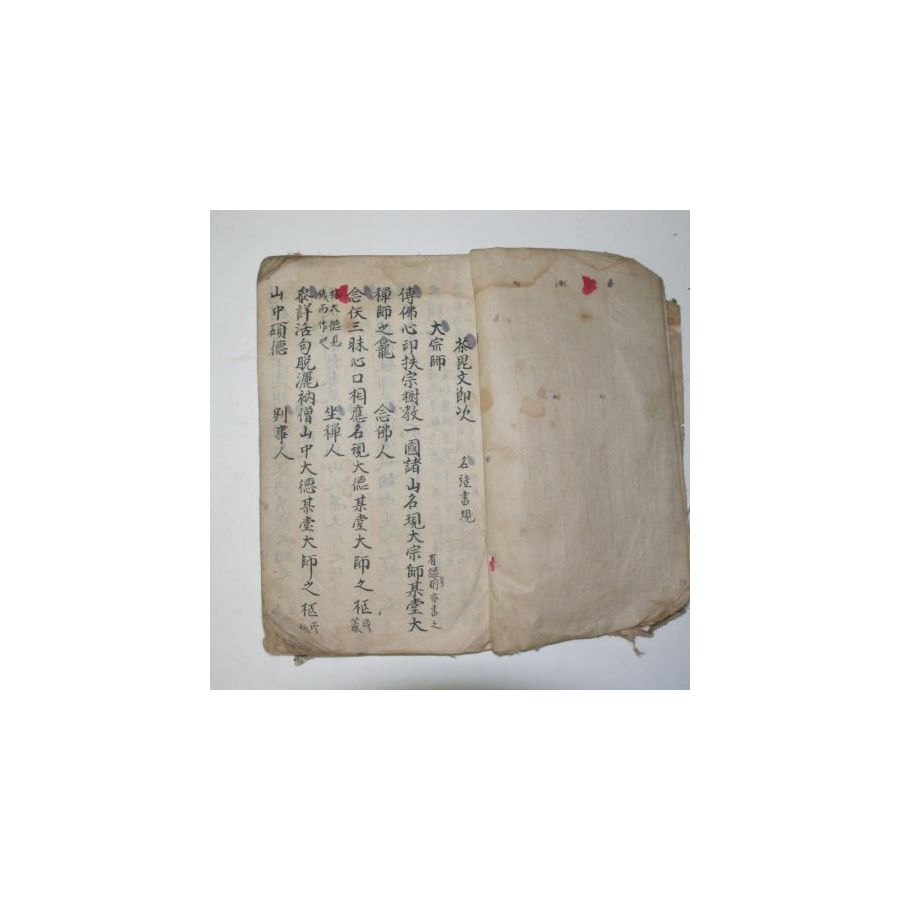 茶毘文節次 名旌書規
大宗師 有諡号則亦書之
傳佛心印扶宗樹教一國諸山名現大宗師某堂大
禪師之龕 念佛人
念仸三昧心口相應名現大德某堂大師之柩 或龕
坐禪人
叅詳活句脫灑衲僧山中大德某堂大師之柩
山中碩德 判事人